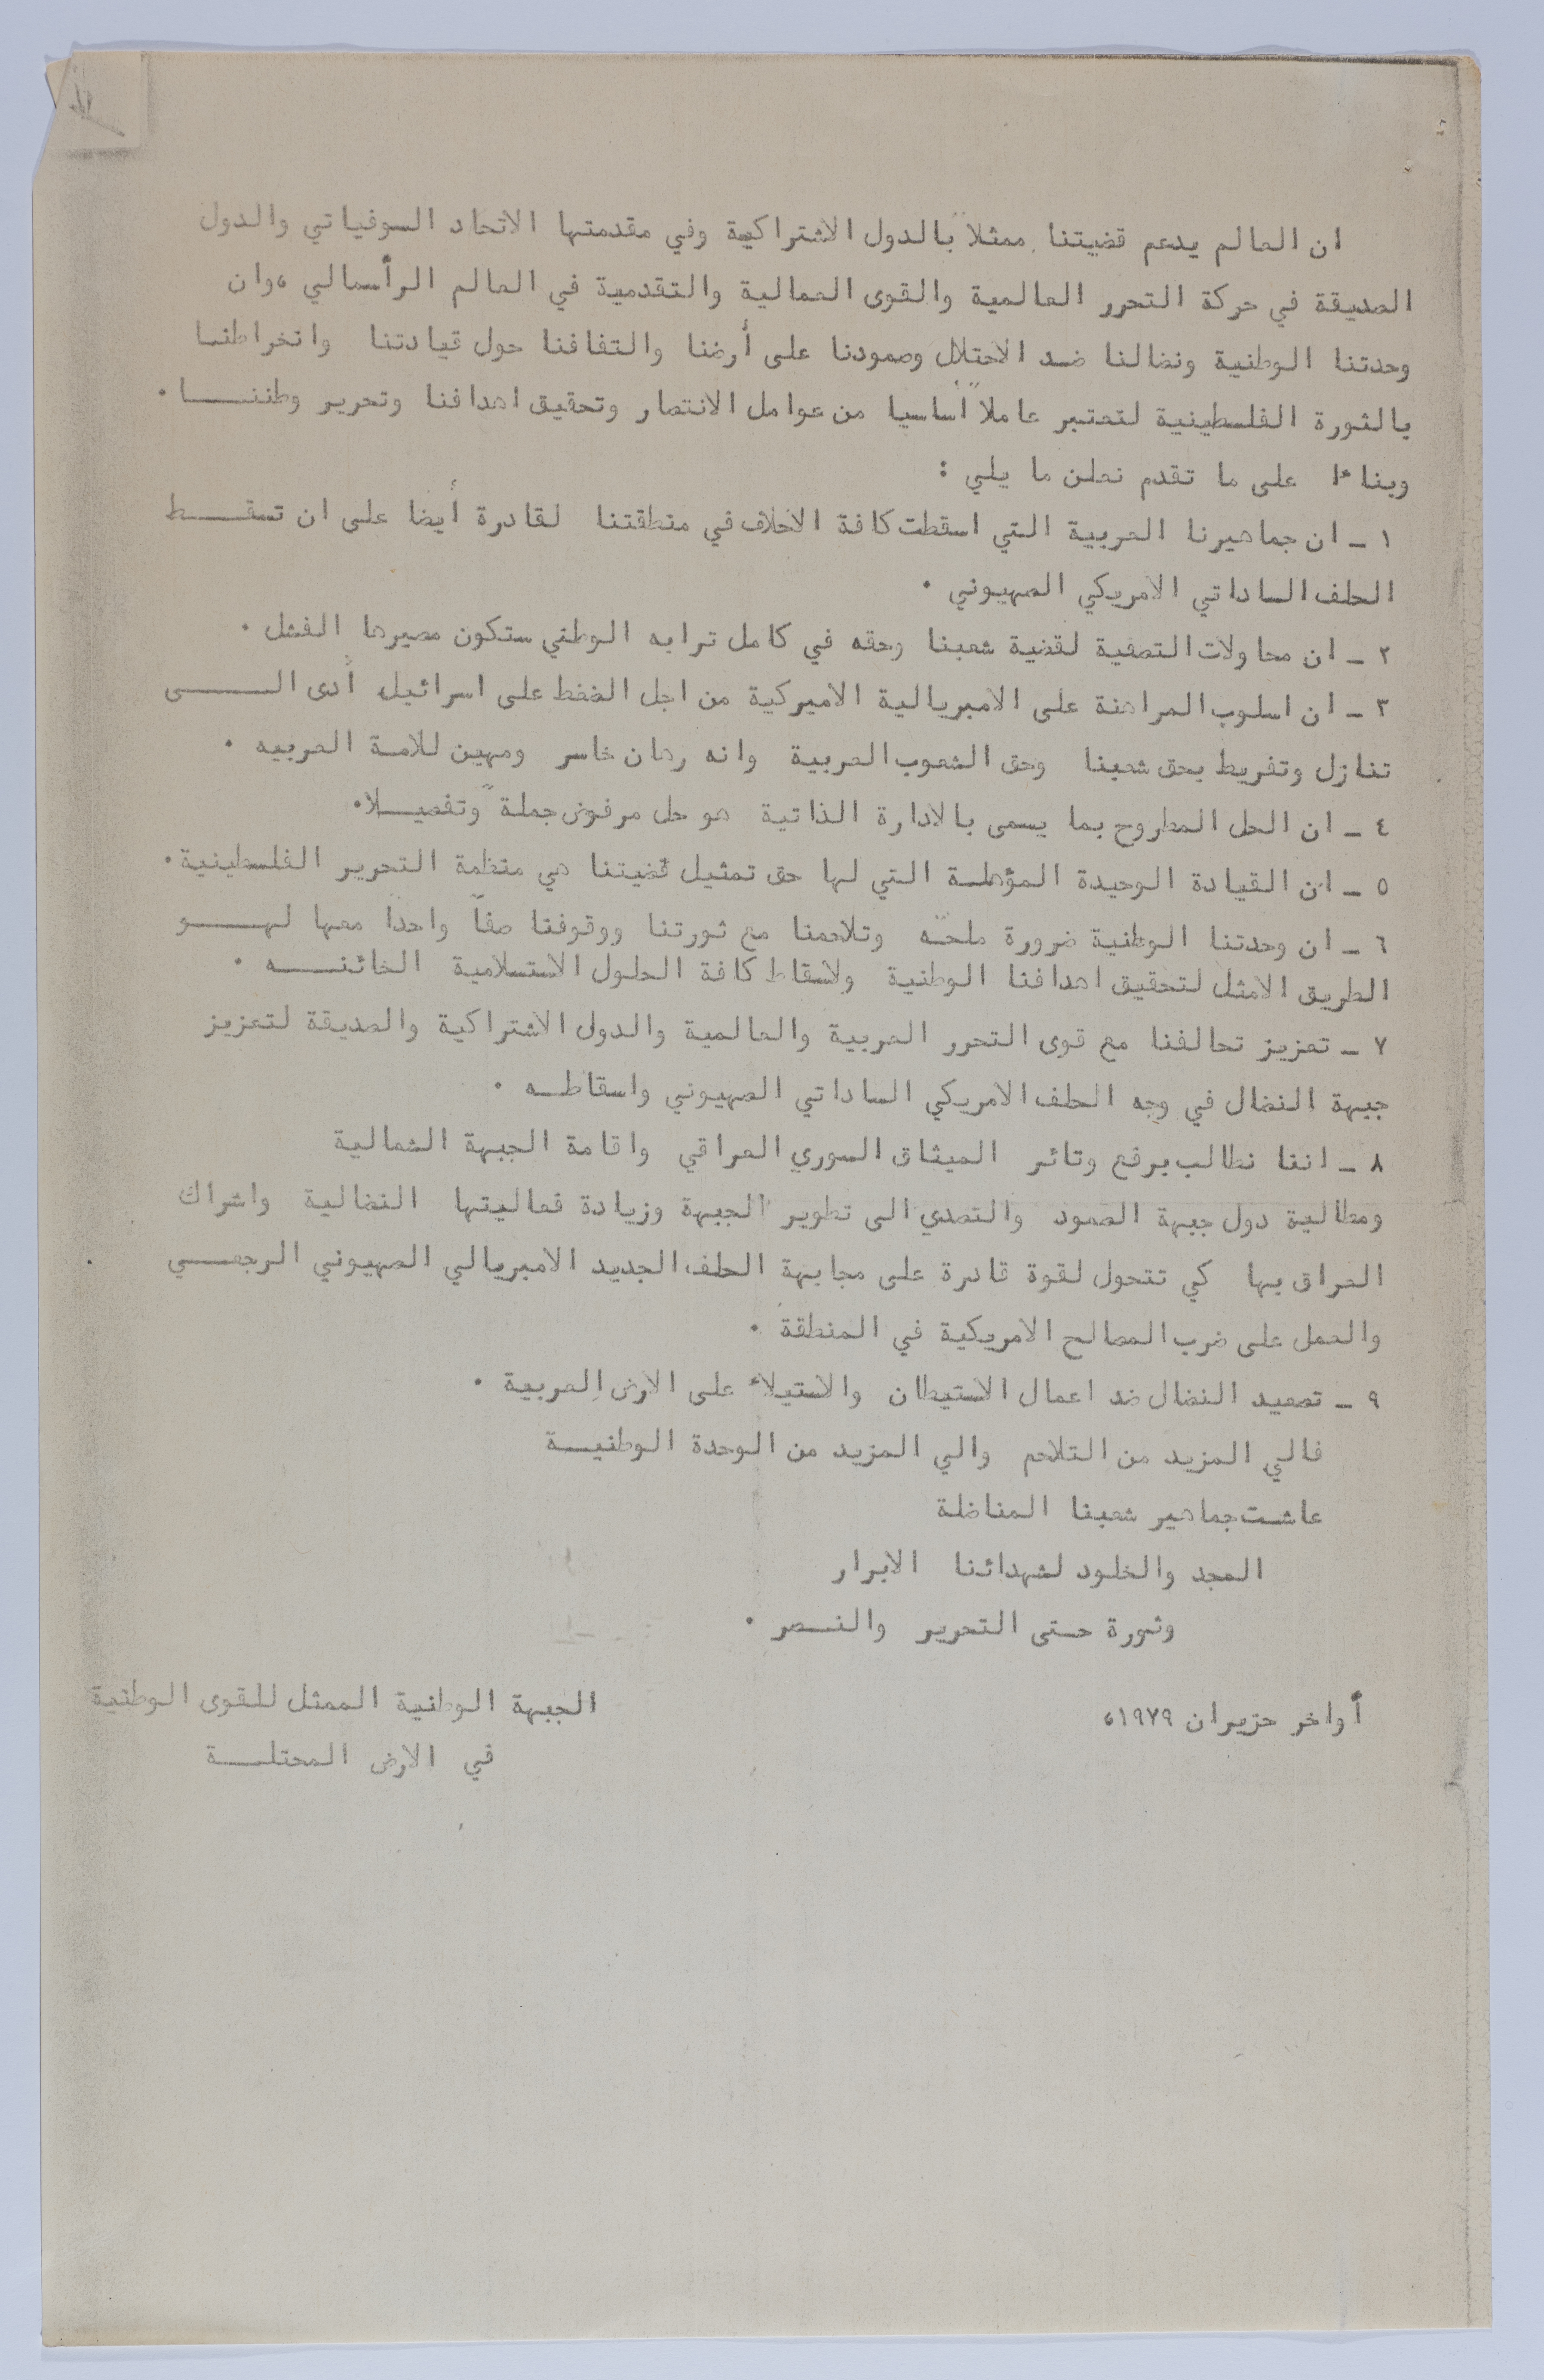 ان العالم يدعم قضيتنا ممثلاً بالدول الاشتراكية وفي مقدمتها الاتحاد السوفياتي والدول
الصديقة في حركة التحرر العالمية والقوى العمالية والتقدمية في العالم الرأسمالي ،وان
وحدتنا الوطنية ونضالنا ضد الاحتلال وصمودنا على أرضنا والتفافنا حول قيادتنا وانخراطنا
بالثورة الفلسطينية لتعتبر عاملاً أساسيا من عوامل الانتصار وتحقيق اهدافنا وتحرير وطننا .
وبناءا على ما تقدم نعلن ما يلي :
١ - ان جماهيرنا العربية التي اسقطت كافة الاحلاف في منطقتنا لقادرة أيضا على ان تسقط
الحلف الساداتي الامريكي الصهيوني .
٢ - ان محاولات التصفية لقضية شعبنا وحقه في كامل ترابه الوطني ستكون مصيرها الفشل .
٣ - ان اسلوب المراهنة على الامبريالية الاميركية من اجل الضغط على اسرائيل، أدى الى
تنازل وتفريط بحق شعبنا وحق الشعوب العربية وانه رهان خاسر ومهين للامة العربيه .
٤ - ان الحل المطروح بما يسمى بالادارة الذاتية هو حل مرفوض جملة ًوتفصيلا.
٥ - ان القيادة الوحيدة المؤهلة التي لها حق تمثيل قضيتنا هي منظمة التحرير الفلسطينية.
٦ - ان وحدتنا الوطنية ضرورة ملحّه وتلاحمنا مع ثورتنا ووقوفنا صفاً واحدا معها لهو
الطريق الامثل لتحقيق اهدافنا الوطنية ولاسقاط كافة الحلول الاستسلامية الخائنه .
٧ - تعزيز تحالفنا مع قوى التحرر العربية والعالمية والدول الاشتراكية والصديقة لتعزيز
جبهة النضال في وجه الحلف الامريكي الساداتي الصهيوني واسقاطه .
٨ - اننا نطالب برفع وتائر الميثاق السوري العراقي واقامة الجبهة الشمالية
ومطالبة دول جبهة الصمود والتصدي الى تطوير الجبهة وزيادة فعاليتها النضالية واشراك
العراق بها كي تتحول لقوة قادرة على مجابهة الحلف الجديد الامبريالي الصهيوني الرجعي
والعمل على ضرب المصالح الامريكية في المنطقة .
٩ - تصعيد النضال ضد اعمال الاستيطان والاستيلاء على الارض العربية .
فالي المزيد من التلاحم والي المزيد من الوحدة الوطنية
عاشت جماهير شعبنا المناضلة
المجد والخلود لشهدائنا الابرار
وثورة حتى التحرير والنصر .
أواخر حزيران ١٩٧٩،
الجبهة الوطنية الممثل للقوى الوطنية
في الارض المحتلة